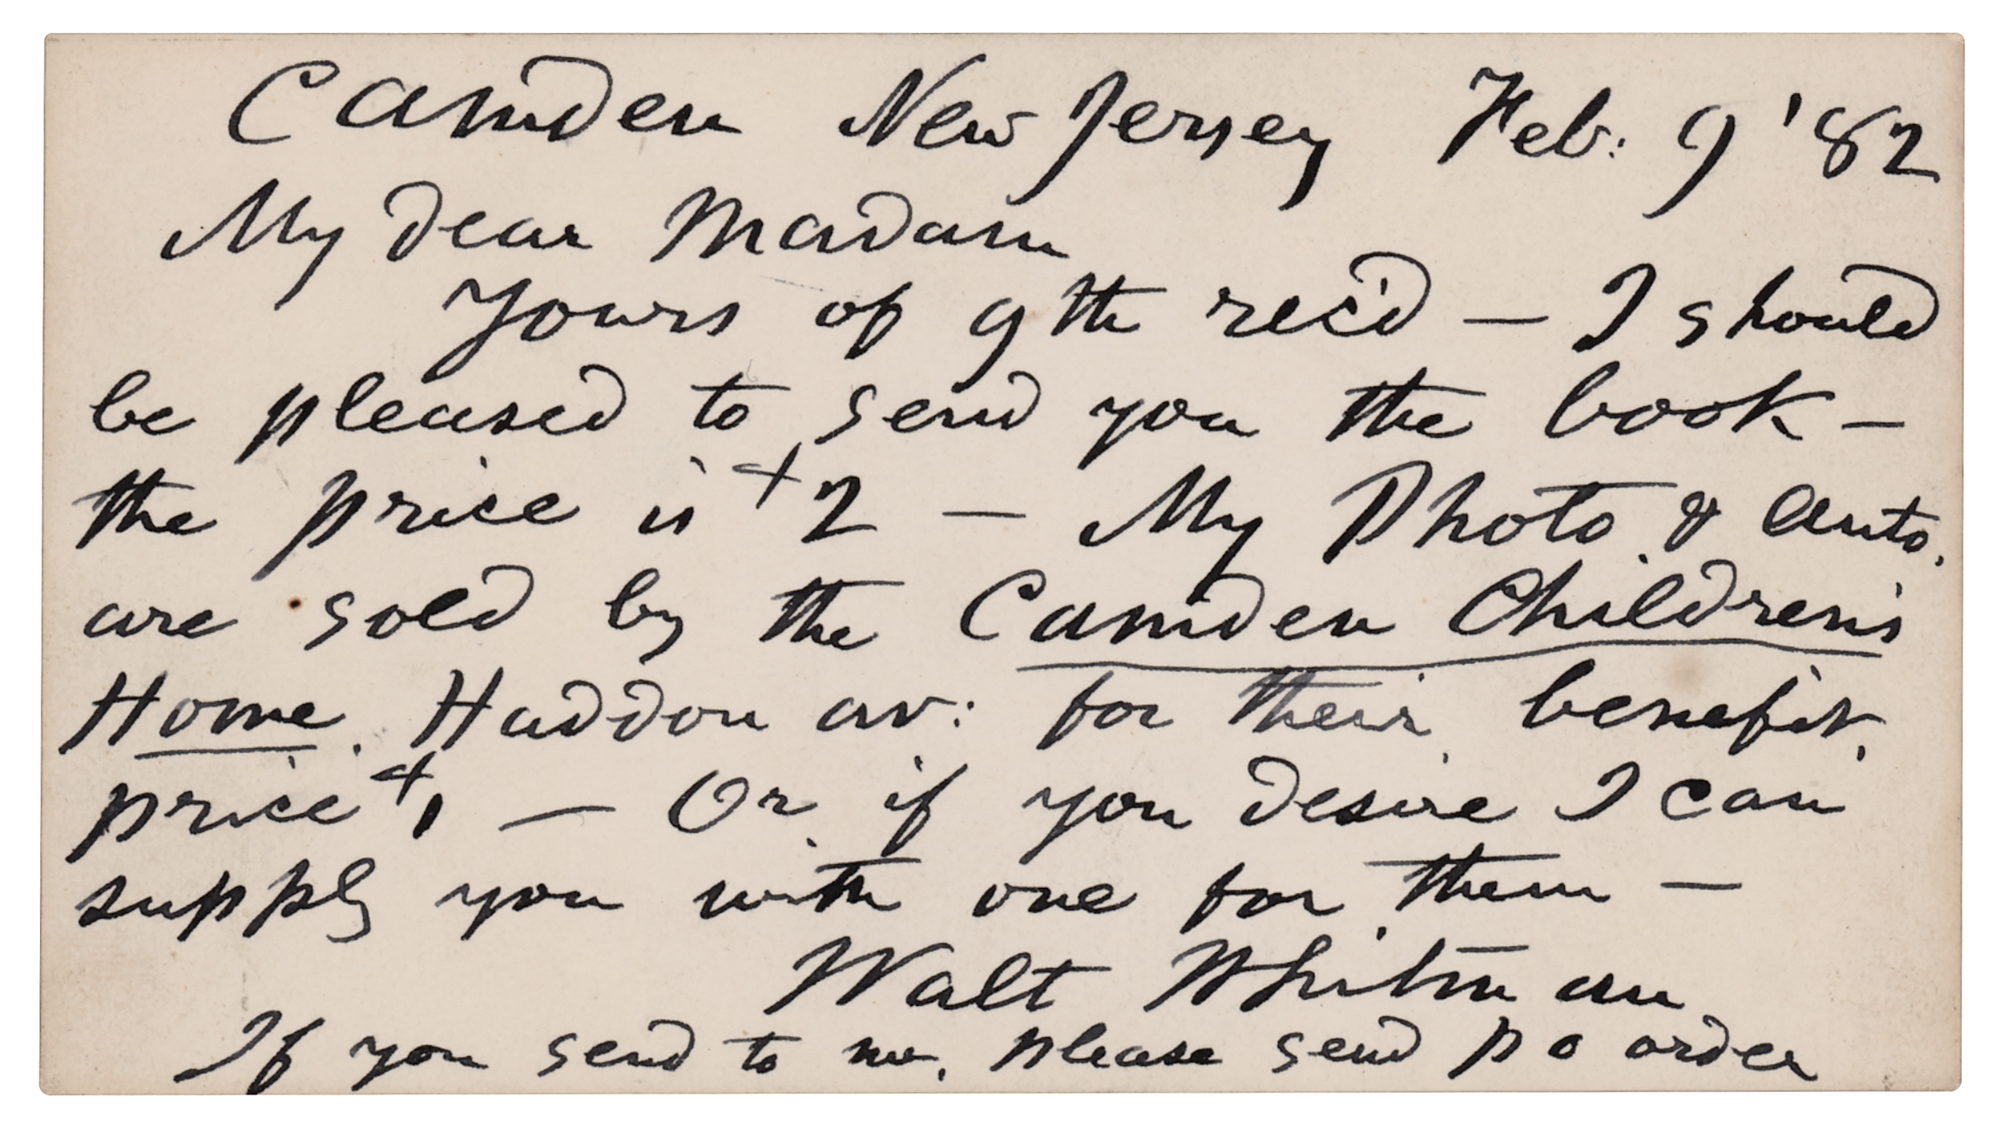 Camden New Jersey Feb: 9 '82
My dear Madam
Yours of 9th rec'd — I should
be pleased to send you the book —
the price is $2 — My Photo. & auto.
are sold by the Camden Children's
Home, Haddon av: for their benefit,
price $1, — Or if you desire I can
supply you with one for them —
Walt Whitman
If you send to me, please send p o order